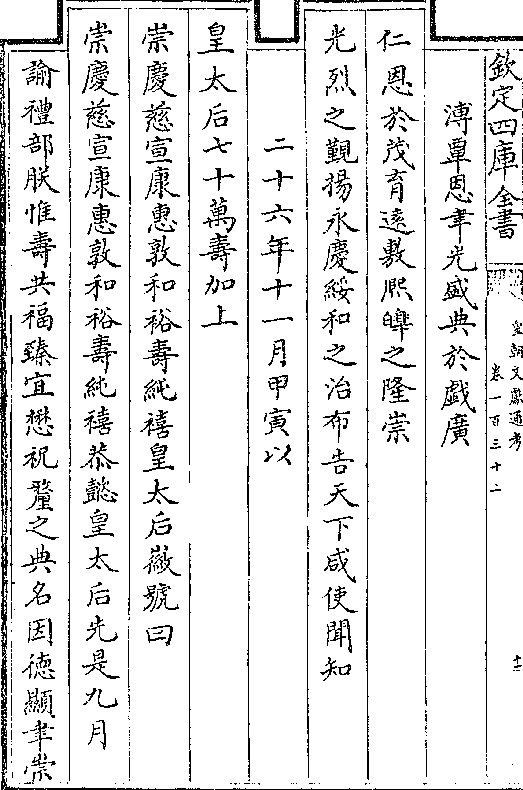 欽定四庫全書
皇朝文獻通考
卷一百三十二
溥覃恩聿光盛典於戲廣
仁恩於茂育遠敷熙皥之隆崇
光烈之覲揚永慶綏和之治布告天下咸使聞知
二十六年十一月甲寅以
皇太后七十萬壽加上
崇慶慈宣康惠敦和裕壽純禧皇太后徽號曰
崇慶慈宣康惠敦和裕壽純禧恭懿皇太后先是九月
諭禮部朕惟壽共福臻宜懋祝釐之典名因德顯聿崇